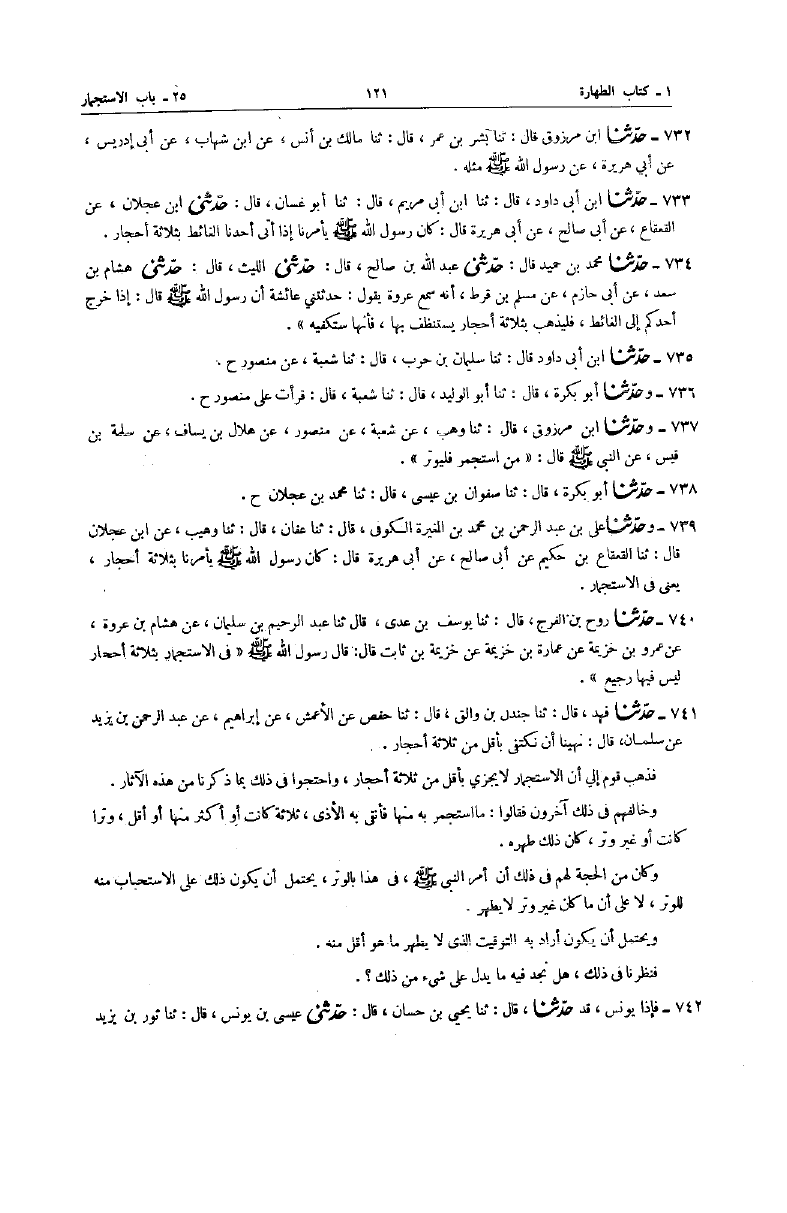 ١ ـ كتاب الطهارة ١٢١ ٢٥ ـ باب الاستجمار
٧٣٢ ـ حدّثنا ابن مرزوق قال : ثنا بشر بن عمر ، قال : ثنا مالك بن أنس ، عن ابن شهاب ، عن أبى إدريس ،
عن أبي هريرة ، عن رسول الله ﷺ مثله .
٧٣٣ ـ حدّثنا ابن أبى داود ، قال : ثنا ابن أبى مريم ، قال : ثنا أبو غسان ، قال : حدّثنى ابن عجلان ، عن
القعقاع ، عن أبى صالح ، عن أبى هريرة قال : كان رسول الله ﷺ يأمرنا إذا أتى أحدنا الغائط بثلاثة أحجار .
٧٣٤ ـ حدّثنا محمد بن حميد قال : حدّثنى عبد الله بن صالح ، قال : حدّثنى الليث ، قال : حدّثنى هشام بن
سعد ، عن أبى حازم ، عن مسلم بن قرط ، أنه سمع عروة يقول : حدثتني عائشة أن رسول الله ﷺ قال : إذا خرج
أحدكم إلى الغائط ، فليذهب بثلاثة أحجار يستنظف بها ، فأنها ستكفيه » .
٧٣٥ ـ حدّثنا ابن أبى داود قال : ثنا سليمان بن حرب ، قال : ثنا شعبة ، عن منصور ح .
٧٣٦ ـ وحدّثنا أبو بكرة ، قال : ثنا أبو الوليد ، قال : ثنا شعبة ، قال : قرأت على منصور ح .
٧٣٧ ـ وحدّثنا ابن مرزوق ، قال : ثنا وهب ، عن شعبة ، عن منصور ، عن هلال بن يساف ، عن سلمة بن
قيس ، عن النبي ﷺ قال : « من استجمر فليوتر » .
٧٣٨ ـ حدّثنا أبو بكرة ، قال : ثنا صفوان بن عيسى ، قال : ثنا محمد بن عجلان ح .
٧٣٩ ـ وحدّثنا على بن عبد الرحمن بن محمد بن المغيرة الكوفى ، قال : ثنا عفان ، قال : ثنا وهيب ، عن ابن عجلان
قال : ثنا القعقاع بن حكيم عن أبى صالح ، عن أبى هريرة قال : كان رسول الله ﷺ يأمرنا بثلاثة أحجار ،
يعنى فى الاستجمار .
٧٤٠ ـ حدّثنا روح بن الفرج، قال : ثنا يوسف بن عدى ، قال ثنا عبد الرحيم بن سليمان ، عن هشام بن عروة ،
عن عمرو بن خزيمة عن عمارة بن خزيمة عن خزيمة بن ثابت قال: قال رسول الله ﷺ « فى الاستجمار بثلاثة أحجار
ليس فيها رجيع » .
٧٤١ ـ حدّثنا فهد ، قال : ثنا جندل بن والق ، قال : ثنا حفص عن الأعمش ، عن إبراهيم ، عن عبد الرحمن بن يزيد
عن سلمان، قال : نهينا أن نكتفى بأقل من ثلاثة أحجار .
فذهب قوم إلى أن الاستجمار لايجزي بأقل من ثلاثة أحجار ، واحتجوا فى ذلك بما ذكرنا من هذه الآثار .
وخالفهم فى ذلك آخرون فقالوا : مااستجمر به منها فأنقى به الأذى ، ثلاثة كانت أو أكثر منها أو أقل ، وترا
كانت أو غير وتر ، كان ذلك طهره .
وكان من الحجة لهم فى ذلك أن أمر النبي ﷺ ، فى هذا بالوتر ، يحتمل أن يكون ذلك على الاستحباب منه
للوتر ، لا على أن ما كان غير وتر لايطهر .
ويحتمل أن يكون أراد به التوقيت الذى لا يطهر ما هو أقل منه .
فنظرنا فى ذلك ، هل نجد فيه ما يدل على شيء من ذلك ؟ .
٧٤٢ ـ فإذا يونس ، قد حدّثنا ، قال : ثنا يحيى بن حسان ، قال : حدّثنى عيسى بن يونس ، قال : ثنا ثور بن يزيد